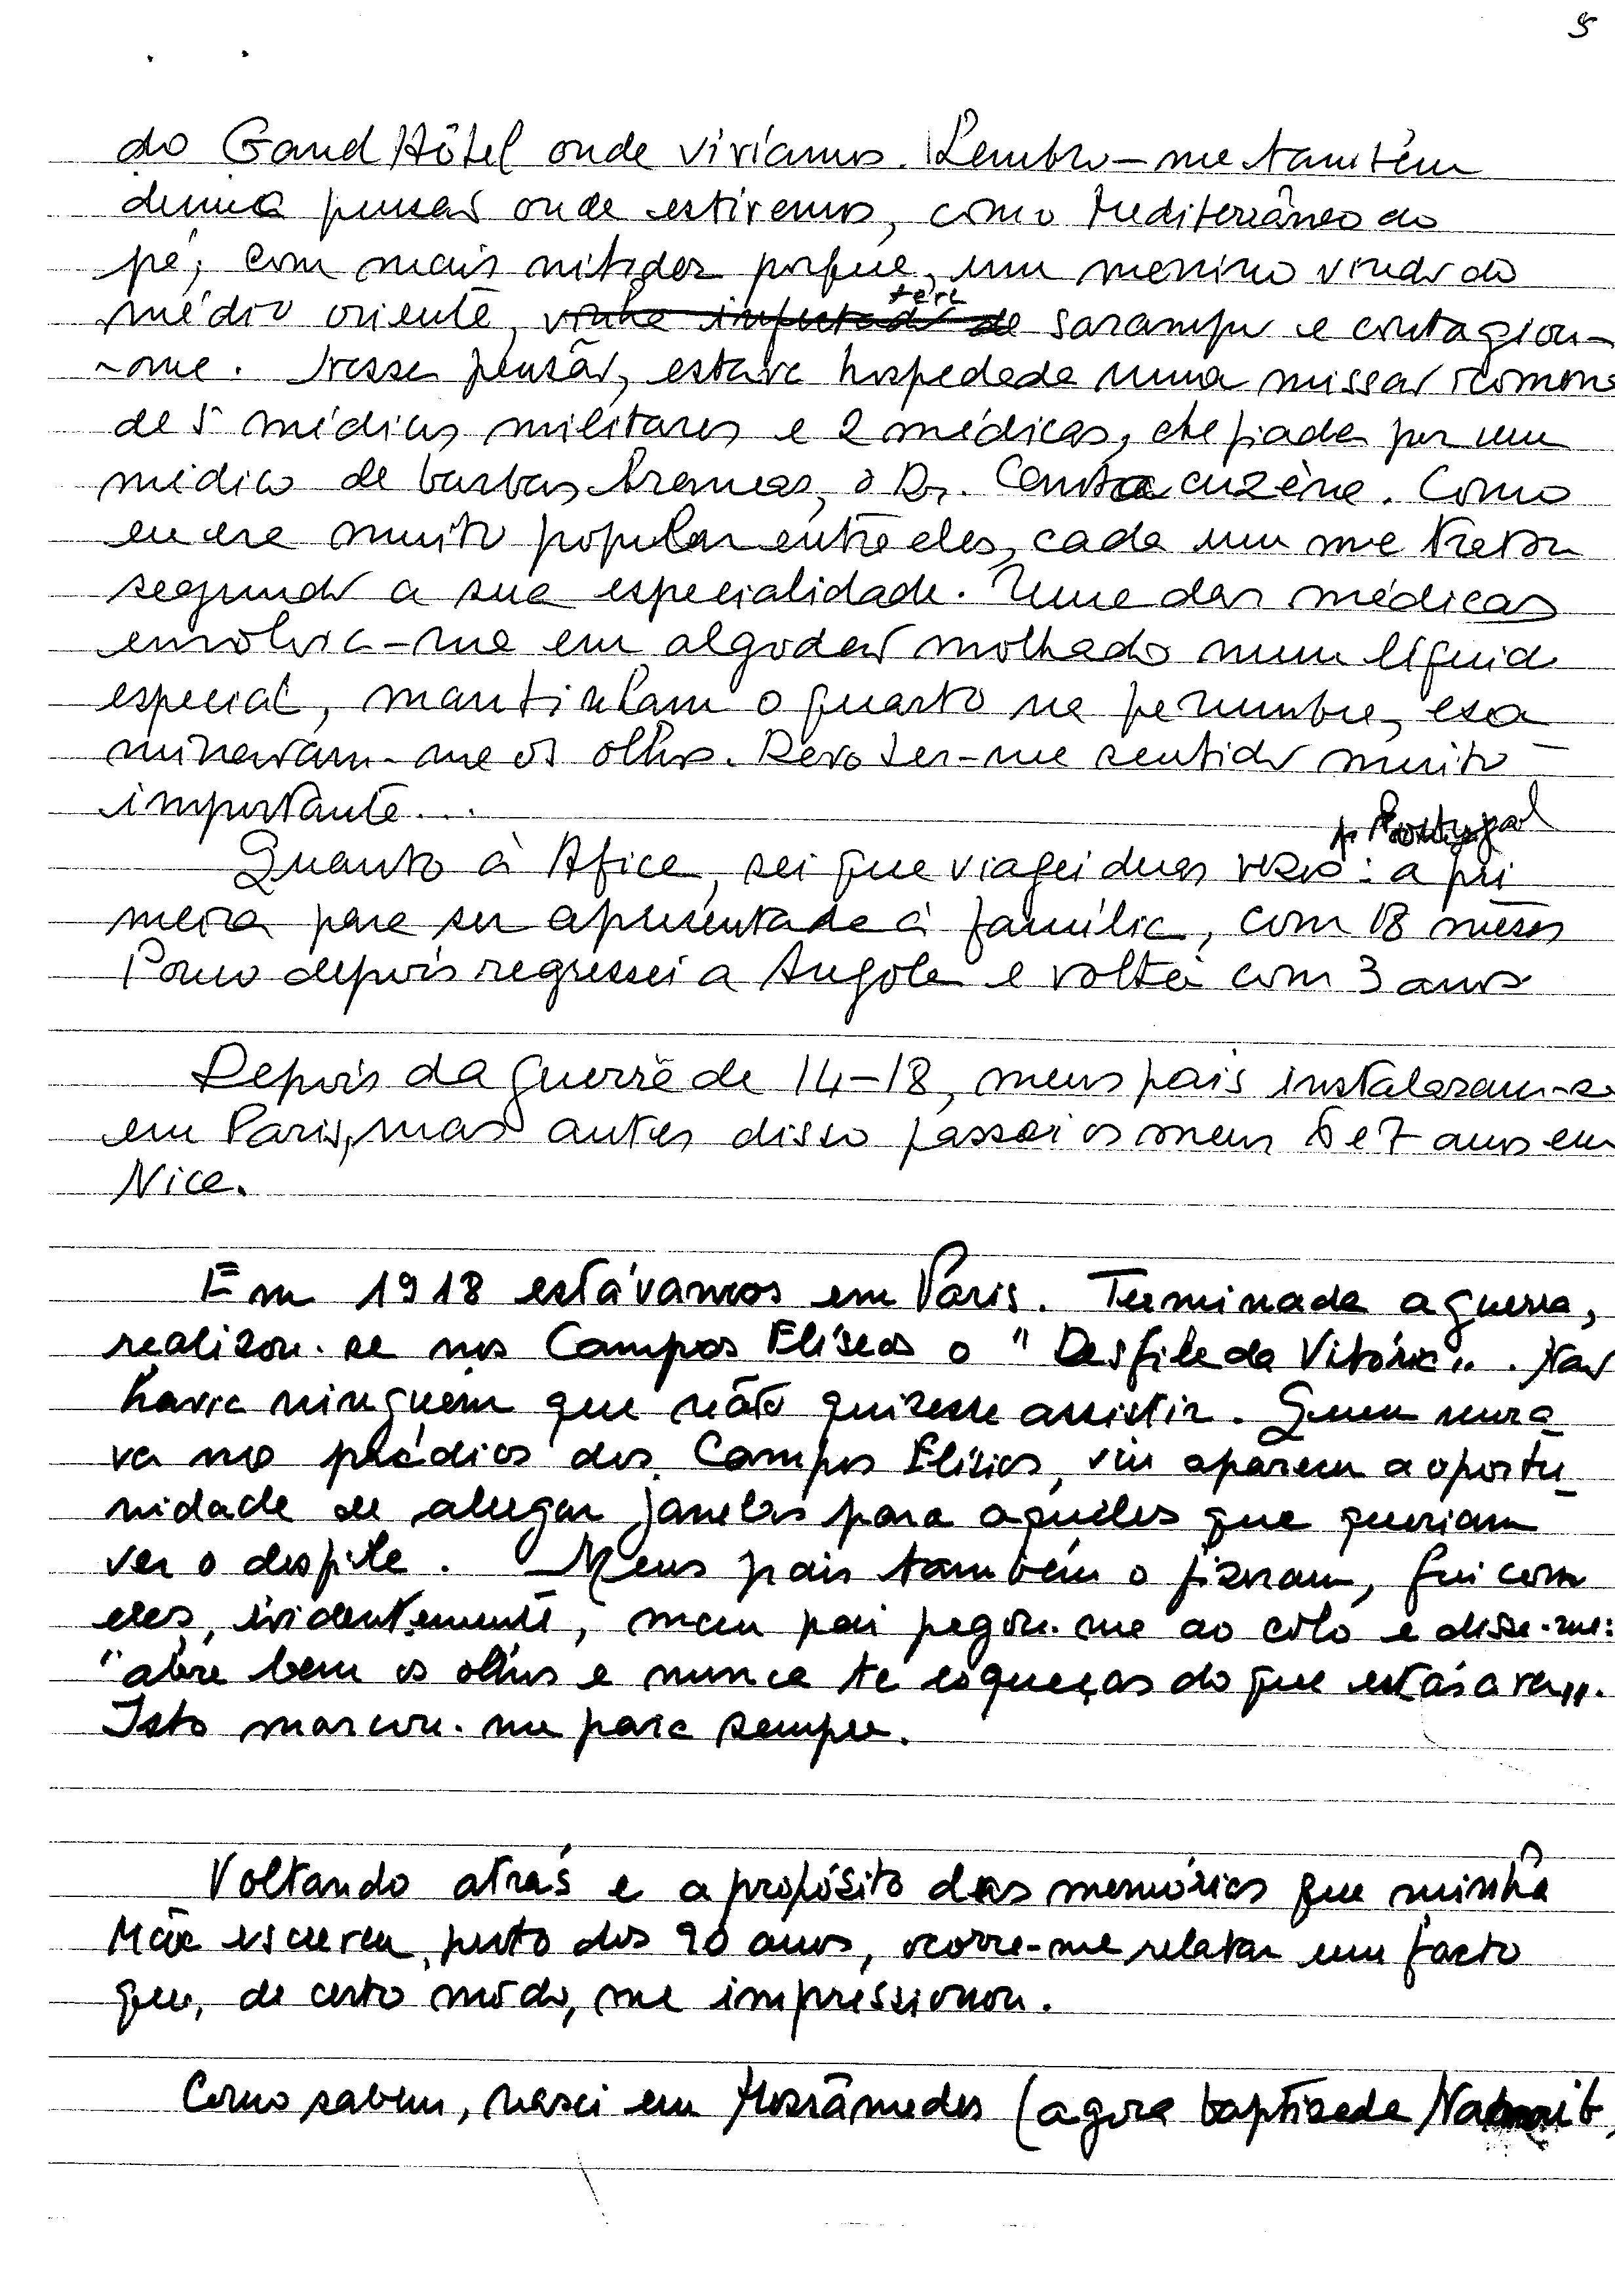 5
do Grand Hôtel onde vivíamos. Lembro-me também
duma pensão onde estivemos, com o Mediterrâneo ao
pé; com mais nitidez porque, um menino vindo do
médio oriente, vinha infectado de teve sarampo e contagiou-
-me. Nessa pensão, estava hospedada uma missão romena
de 5 médicos militares e 2 médicas, chefiada por um
médico de barbas brancas, o Dr. Cantacuzène. Como
eu era muito popular entre eles, cada um me tratou
segundo a sua especialidade. Uma das médicas
envolvia-me em algodão molhado num líquido
especial, mantinham o quarto na penumbra, exa-
minavam-me os olhos. Devo ter-me sentido muito
importante...
Quanto à Africa, sei que viajei duas vezes p. Portugal: a pri
meira para ser apresentada à família, com 18 meses
Pouco depois regressei a Angola e voltei com 3 anos
Depois da guerra de 14-18, meus pais instalaram-se
em Paris, mas antes disso passei os meus 6 e 7 anos em
Nice.
Em 1918 estávamos em Paris. Terminada a guerra,
realizou-se nos Campos Elíseos o "Desfile da Vitória". Não
havia ninguém que não quizesse assistir. Quem mora
va nos prédios dos Campos Elísios, viu aparecer a oportu
nidade de alugar janelas para aqueles que queriam
ver o desfile. Meus pais também o fizeram, fui com
eles, evidentemente, meu pai pegou-me ao colo e disse-me:
"abre bem os olhos e nunca te esqueças do que estás a ver".
Isto marcou-me para sempre.
Voltando atrás e a propósito das memórias que minha
Mãe escreveu, perto dos 90 anos, ocorre-me relatar um facto
que, de certo modo, me impressionou.
Como sabem, nasci em Mossâmedes (agora baptizada Namib,